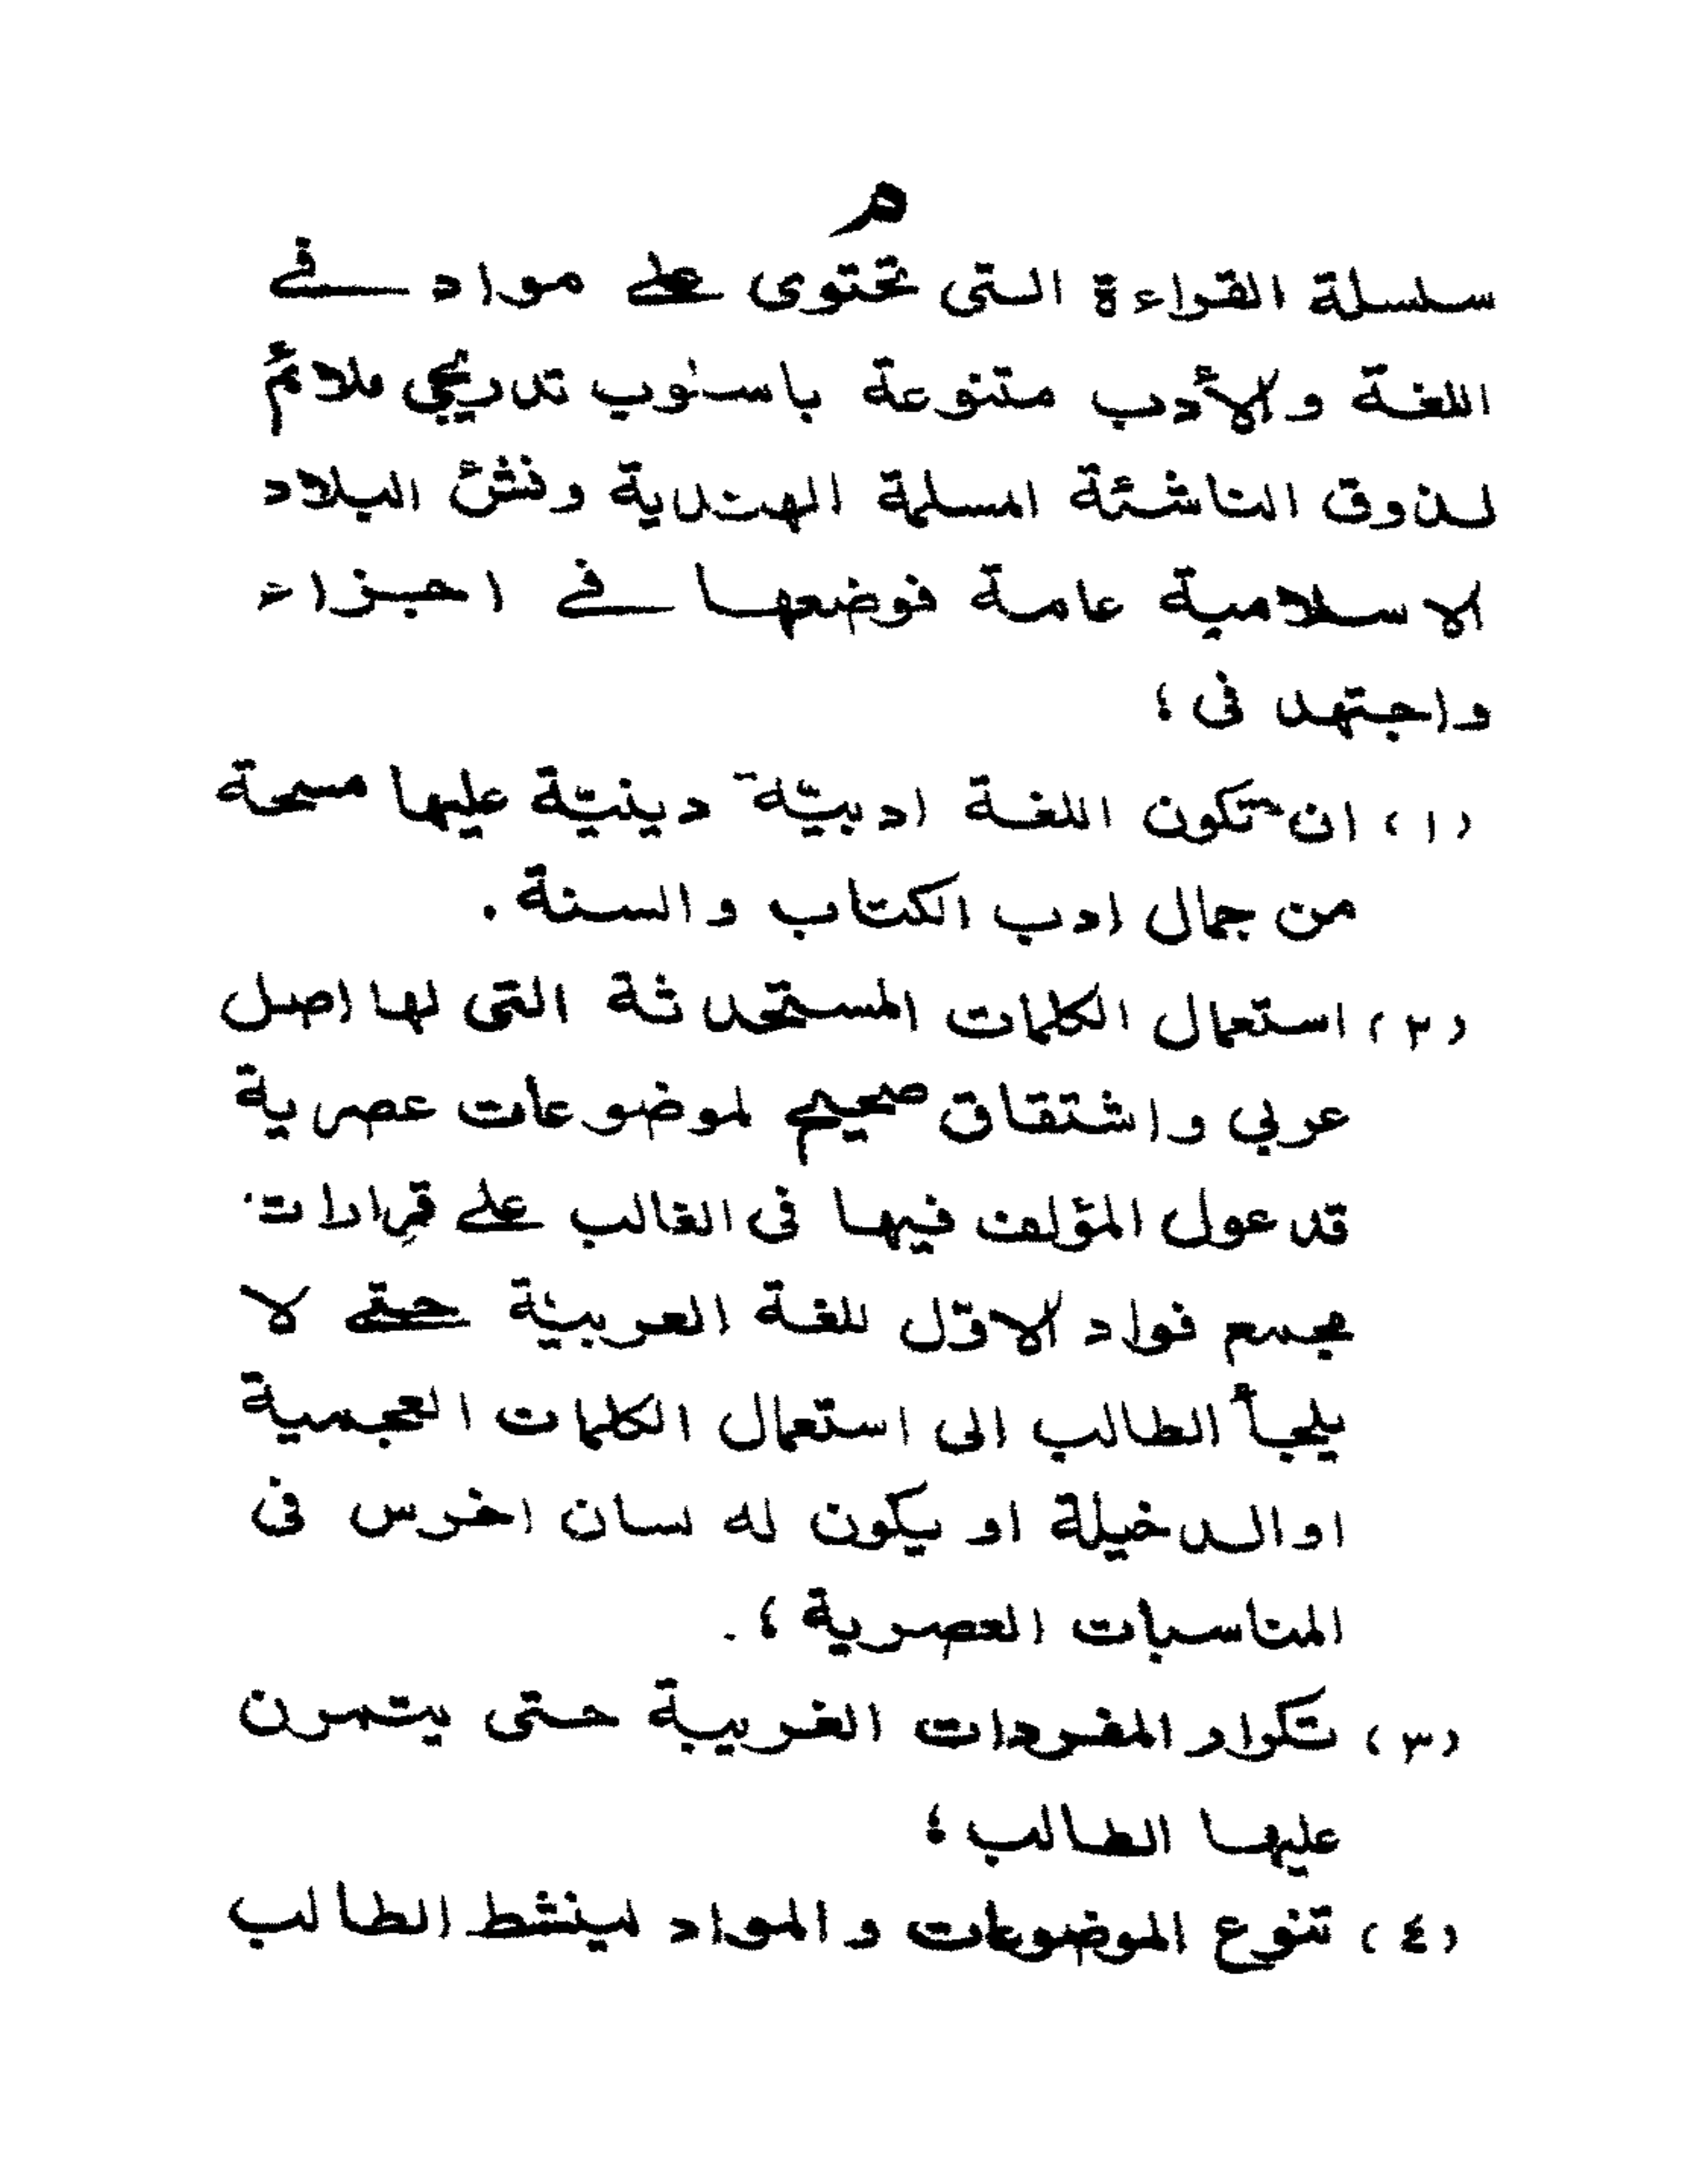 م
سلسلة القراءة التى تحتوى على مواد في
اللغة والأدب متنوعة باسلوب تدريجي ملائم
لذوق الناشئة المسلمة الهندية ونشئ البلاد
الاسلامية عامة فوضعها في اجزاء
واجتهد فى ؛
(١) ان تكون اللغة ادبيّة دينيّة عليها مسحة
من جمال ادب الكتاب والسنة .
(٢) استعمال الكلمات المستحدثة التى لها اصل
عربي واشتقاق صحيح لموضوعات عصرية
قد عول المؤلف فيها فى الغالب على قرارات
مجمع فواد الاوّل للغة العربيّة حتى لا
يلجأ الطالب الى استعمال الكلمات العجمية
او الدخيلة او يكون له لسان اخرس فى
المناسبات العصرية ؛.
(٣) تكرار المفردات الغريبة حتى يتمرن
عليها الطالب ؛
(٤) تنوع الموضوعات والمواد لينشط الطالب